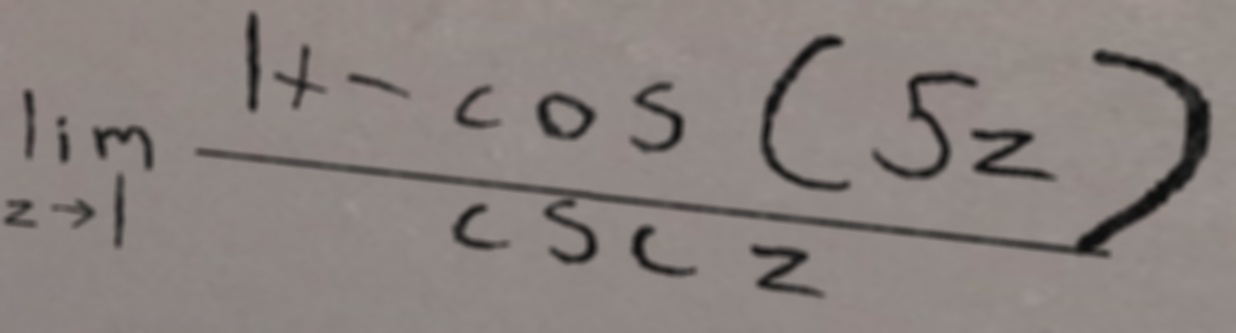 \lim_{z \to 1} \frac{1 + - \cos(5z)}{\csc z}